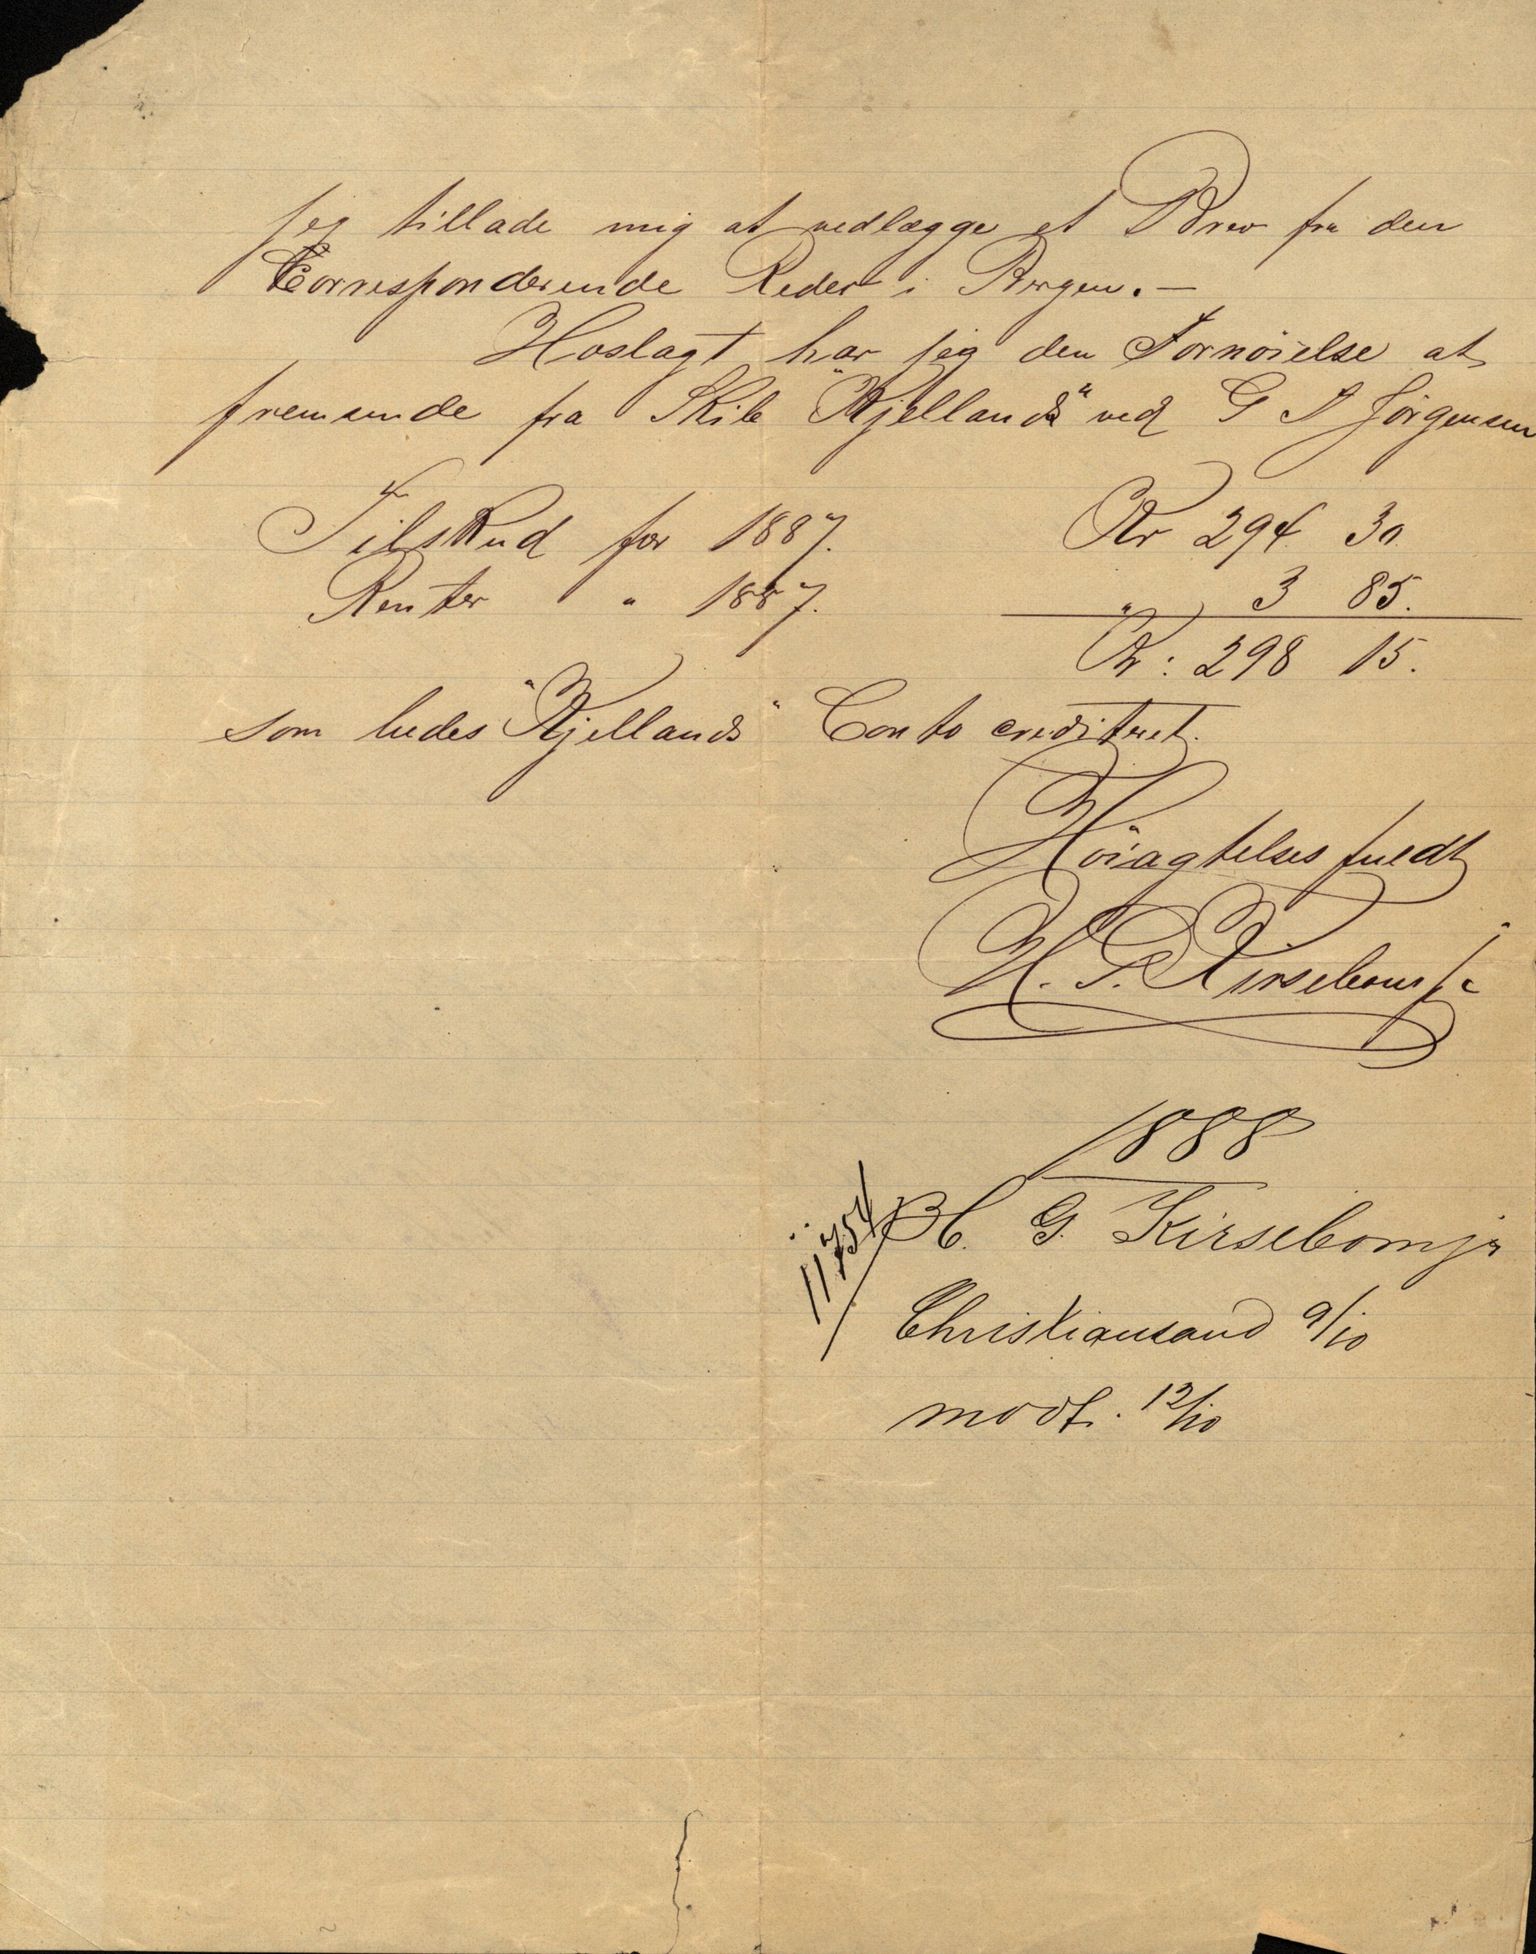 Jeg tillade mig at vedlægge et Brev fra den
Corresponderende Reder i Bergen. —
Hoslagt har jeg den Fornöielse at
fremsende fra Skib "Kjellands" ved G S Jörgensen
Tilskud for 1887. Kr 294. 30.
Renter " 1887. " 3 85.
Kr: 298 15.
som bedes "Kjellands" Conto creditert.
Höiagtelsesfuldt
H. G. Kirsebom jr
1888
11754
H. G. Kirsebom jr
Christiansand 9/10
modt. 12/10